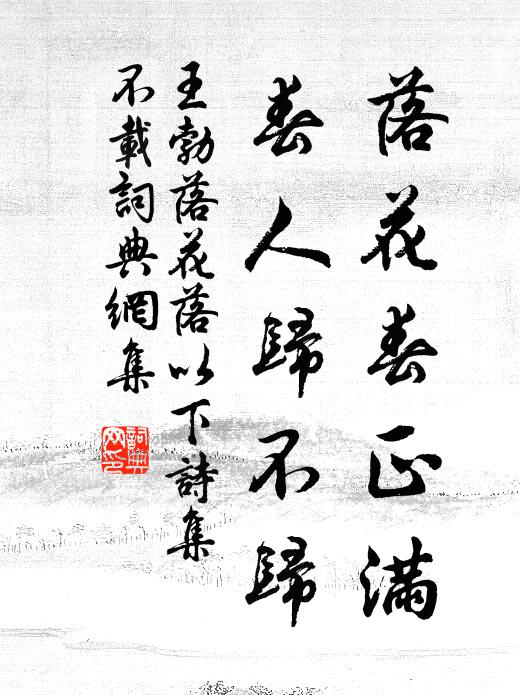 落花春正滿
春人歸不歸
王勃落花落以下詩集
不載詞典網集
詞典网印